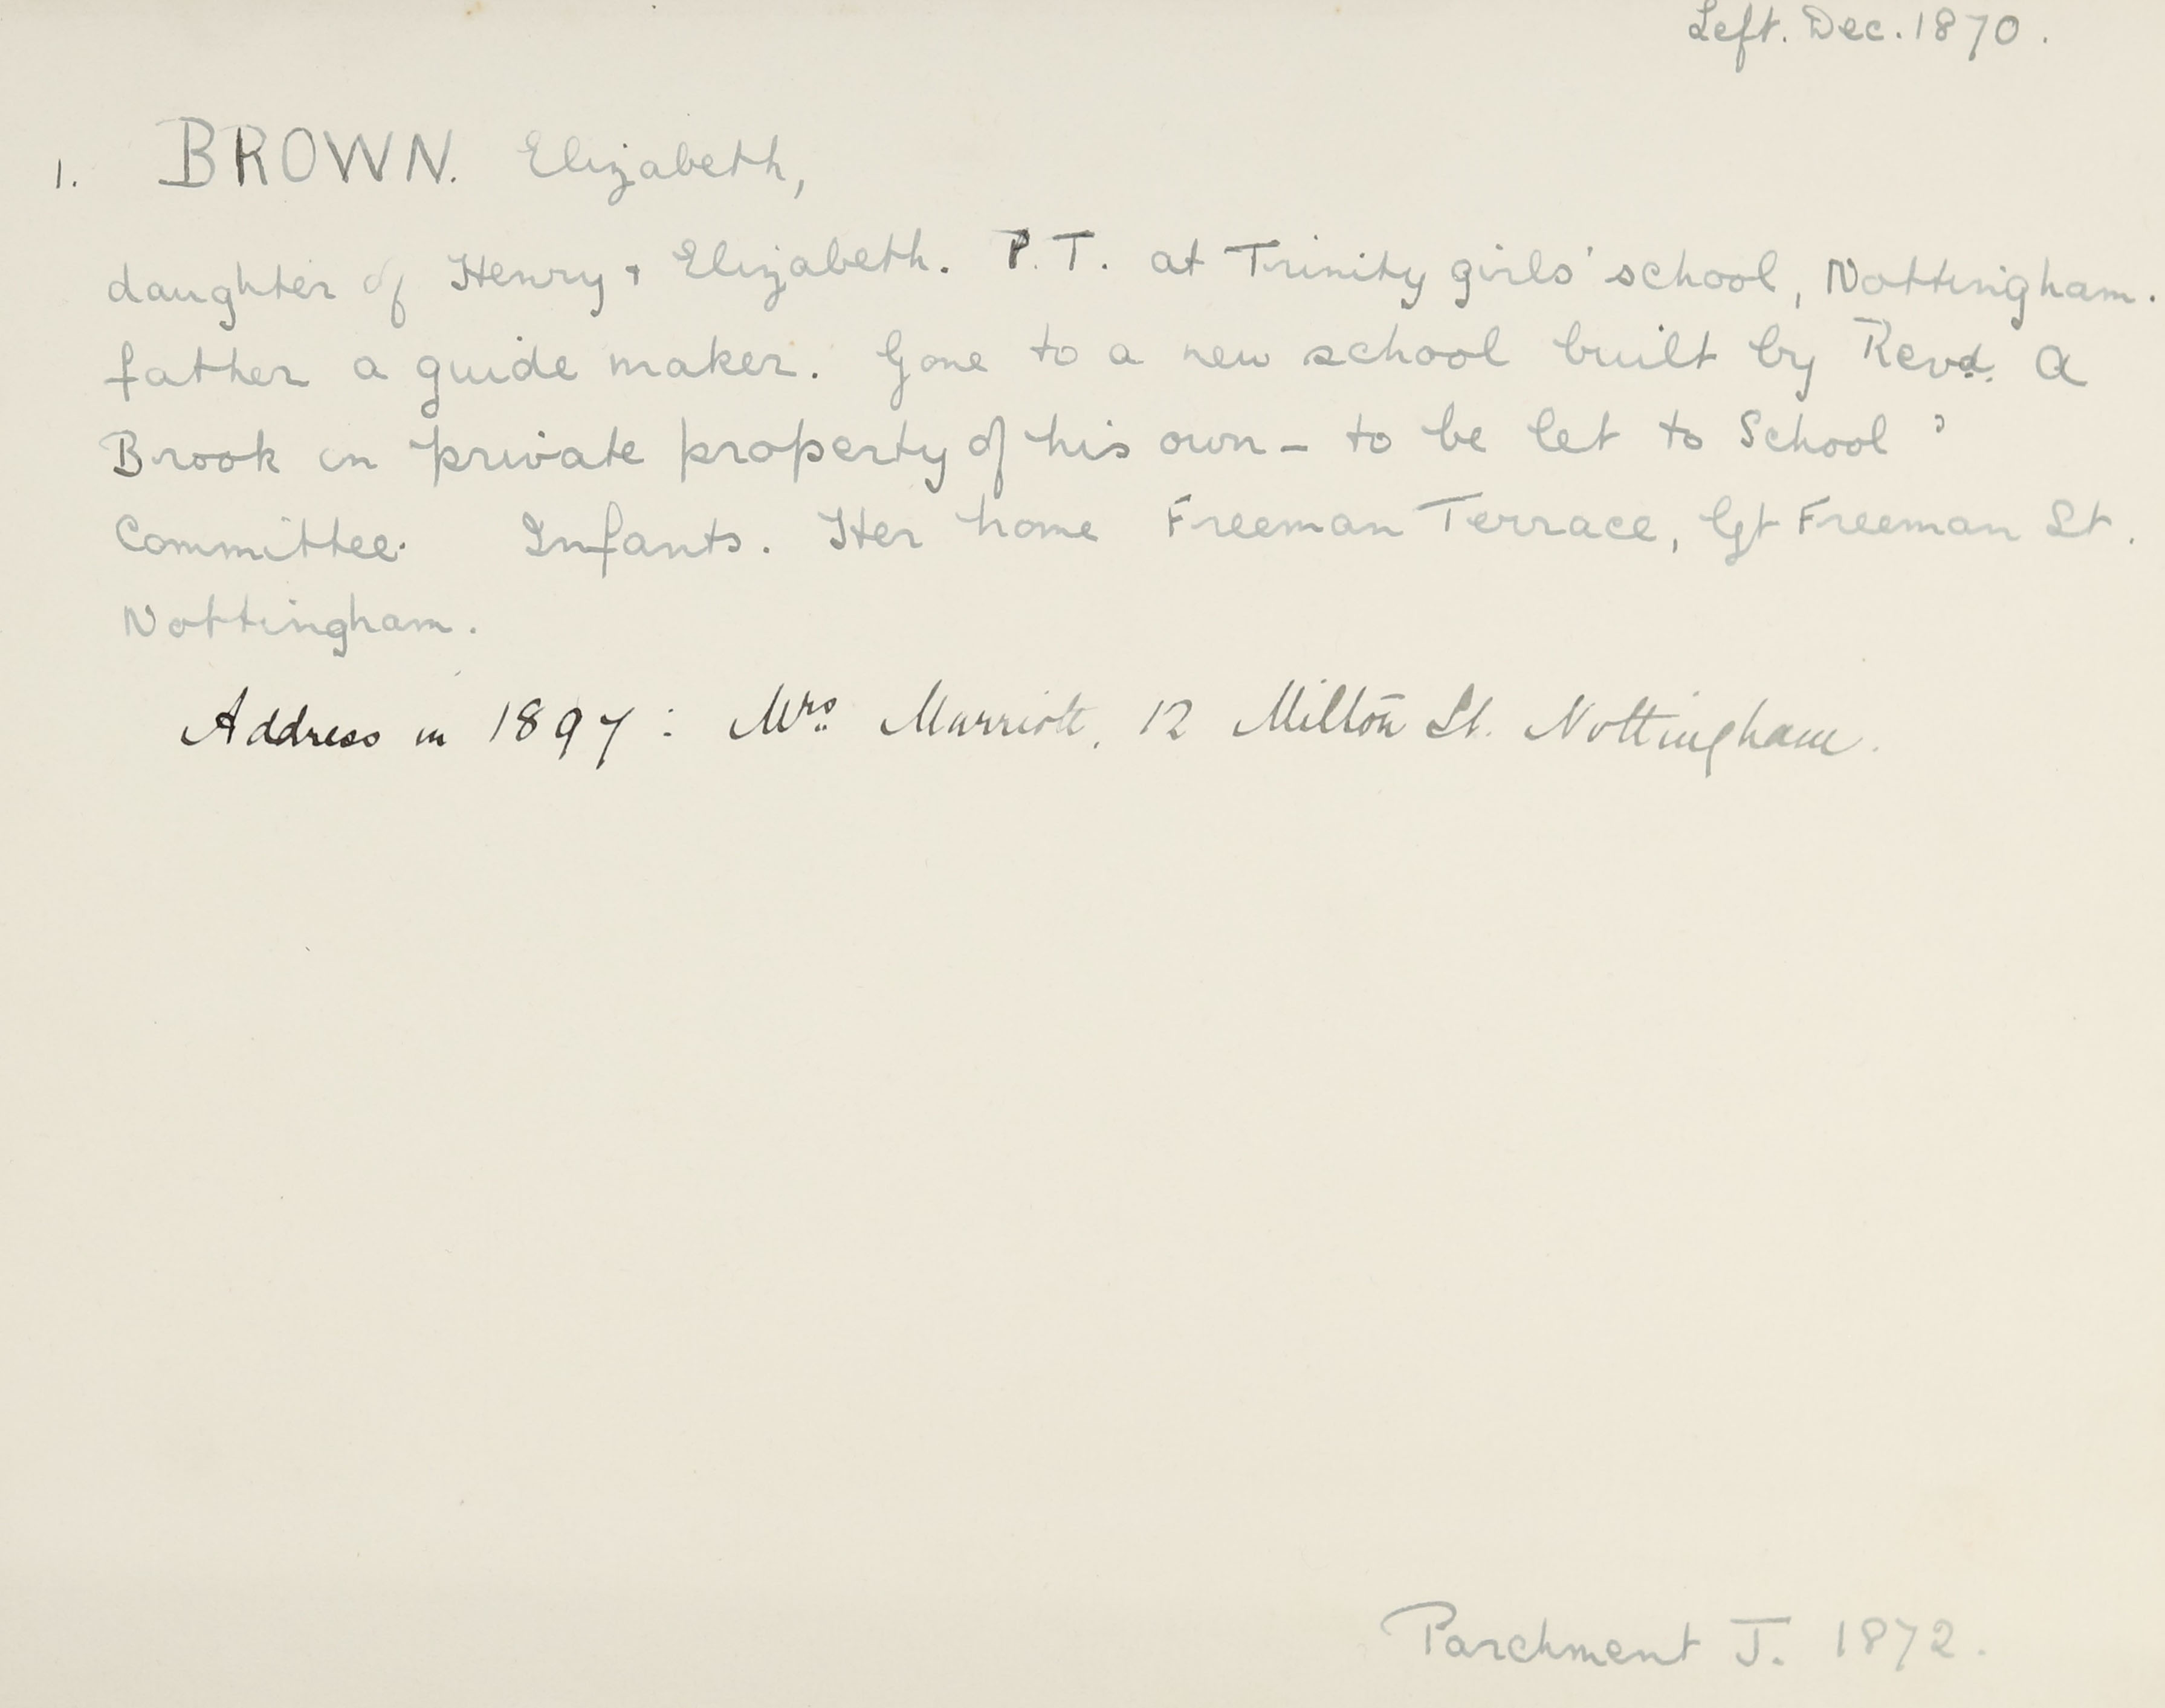 Left. Dec. 1870.
1. BROWN. Elizabeth,
daughter of Henry + Elizabeth. P.T. at Trinity girls' school, Nottingham.
father a guide maker. Gone to a new school built by Revd. A
Brook in private property of his own - to be let to School ?
Committee. Infants. Her home Freeman Terrace, Gt Freeman St.
Nottingham.
Address in 1897: Mrs. Marriott, 12 Milton St. Nottingham.
Parchment J. 1872.